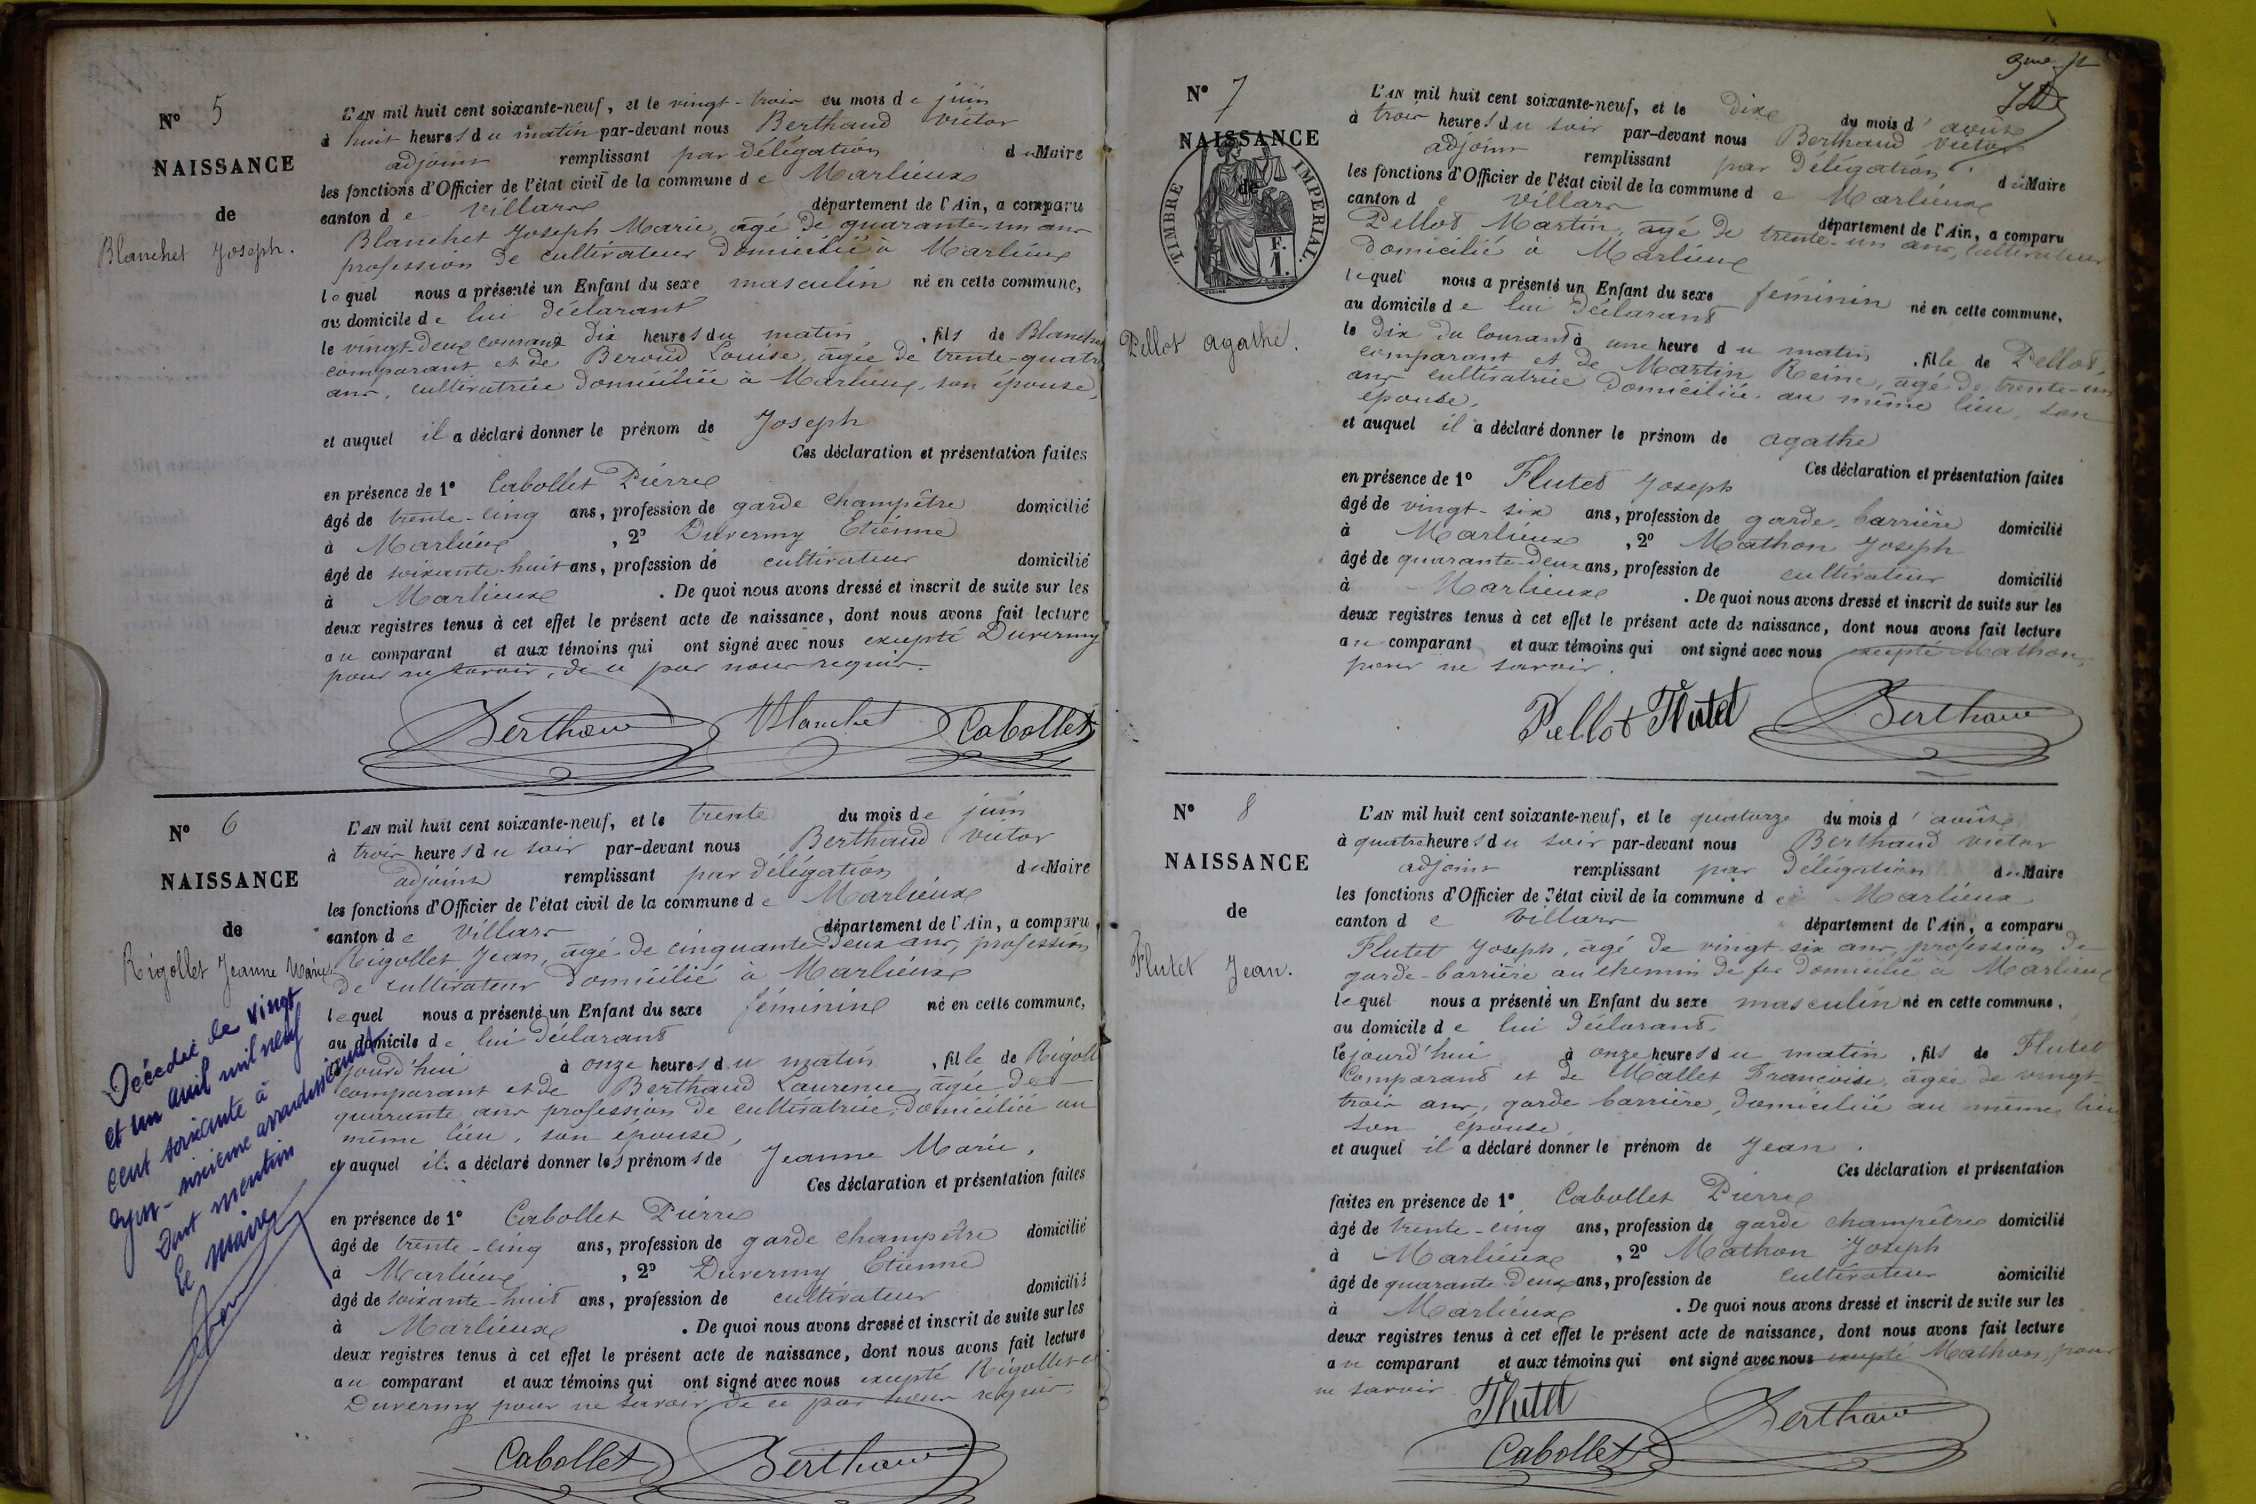 N° 5
NAISSANCE
de
Blanchet Joseph.
L'AN mil huit cent soixante-neuf, et le vingt-trois du mois de juin
à huit heures du matin par-devant nous Berthaud Victor
adjoint remplissant par délégation du Maire
les fonctions d'Officier de l'état civil de la commune de Marlieux
canton de Villars département de l'Ain, a comparu
Blanchet Joseph Marie, âgé de quarante-un ans
profession de cultivateur domicilié à Marlieux
lequel nous a présenté un Enfant du sexe masculin né en cette commune,
au domicile de lui déclarant
le vingt-deux courant à dix heures du matin, fils de Blanchet
comparant et de Beroud Louise, âgée de trente-quatre
ans, cultivatrice domiciliée à Marlieux, son épouse,
et auquel il a déclaré donner le prénom de Joseph
Ces déclaration et présentation faites
en présence de 1° Cabollet Pierre
âgé de trente-cinq ans, profession de garde champêtre domicilié
à Marlieux, 2° Duvermy Etienne
âgé de soixante-huit ans, profession de cultivateur domicilié
à Marlieux. De quoi nous avons dressé et inscrit de suite sur les
deux registres tenus à cet effet le présent acte de naissance, dont nous avons fait lecture
au comparant et aux témoins qui ont signé avec nous excepté Duvermy
pour ne savoir, de ce par nous requis.
Berthaud Blanchet Cabollet
N° 6
NAISSANCE
de
Rigollet Jeanne Marie
Décédée le vingt
et un avril mil neuf
cent soixante à
Lyon - sixième arrondissement
Dont mention
Le Maire
L'AN mil huit cent soixante-neuf, et le trente du mois de juin
à trois heures du soir par-devant nous Berthaud Victor
adjoint remplissant par délégation du Maire
les fonctions d'Officier de l'état civil de la commune de Marlieux
canton de Villars département de l'Ain, a comparu
Rigollet Jean, âgé de cinquante-deux ans, profession
de cultivateur domicilié à Marlieux
lequel nous a présenté un Enfant du sexe féminin né en cette commune,
au domicile de lui déclarant
jourd'hui à onze heures du matin, fille de Rigoll
comparant et de Berthaud Laurence âgée de
quarante ans profession de cultivatrice, domiciliée au
même lieu, son épouse,
et auquel il a déclaré donner les prénoms de Jeanne Marie,
Ces déclaration et présentation faites
en présence de 1° Cabollet Pierre
âgé de trente-cinq ans, profession de garde champêtre domicilié
à Marlieux, 2° Duvermy Etienne
âgé de soixante-huit ans, profession de cultivateur domicilié
à Marlieux. De quoi nous avons dressé et inscrit de suite sur les
deux registres tenus à cet effet le présent acte de naissance, dont nous avons fait lecture
au comparant et aux témoins qui ont signé avec nous excepté Rigollet et
Duvermy pour ne savoir de ce par nous requis.
Cabollet Berthaud
N° 7
NAISSANCE
de
TIMBRE IMPERIAL.
F.
1.
Pellot Agathe.
L'AN mil huit cent soixante-neuf, et le dix du mois d'août
à trois heures du soir par-devant nous Berthaud Victor
adjoint remplissant par délégation du Maire
les fonctions d'Officier de l'état civil de la commune de Marlieux
canton de Villars département de l'Ain, a comparu
Pellot Martin, âgé de trente-un ans, cultivateur
domicilié à Marlieux
lequel nous a présenté un Enfant du sexe féminin né en cette commune,
au domicile de lui déclarant
le dix du courant à une heure du matin, fille de Pellot,
comparant et de Martin Reine, âgé de trente-un
ans cultivatrice domiciliée au même lieu, son
épouse,
et auquel il a déclaré donner le prénom de Agathe
Ces déclaration et présentation faites
en présence de 1° Flutet Joseph
âgé de vingt-six ans, profession de garde-barrière domicilié
à Marlieux, 2° Mathon Joseph
âgé de quarante-deux ans, profession de cultivateur domicilié
à Marlieux. De quoi nous avons dressé et inscrit de suite sur les
deux registres tenus à cet effet le présent acte de naissance, dont nous avons fait lecture
au comparant et aux témoins qui ont signé avec nous excepté Mathon,
pour ne savoir.
Pellot Flutet Berthaud
N° 8
NAISSANCE
de
Flutet Jean.
L'AN mil huit cent soixante-neuf, et le quatorze du mois d'août
à quatre heures du soir par-devant nous Berthaud Victor
adjoint remplissant par délégation du Maire
les fonctions d'Officier de l'état civil de la commune de Marlieux
canton de Villars département de l'Ain, a comparu
Flutet Joseph, âgé de vingt-six ans, profession de
garde-barrière au chemin de fer domicilié à Marlieux
lequel nous a présenté un Enfant du sexe masculin né en cette commune,
au domicile de lui déclarant.
le jourd'hui à onze heures du matin, fils de Flutet
comparant et de Mallet Francoise, âgée de vingt-
trois ans, garde barrière, domiciliée au même lieu
son épouse
et auquel il a déclaré donner le prénom de Jean.
Ces déclaration et présentation
faites en présence de 1° Cabollet Pierre
âgé de trente-cinq ans, profession de garde champêtre domicilié
à Marlieux, 2° Mathon Joseph
âgé de quarante-deux ans, profession de cultivateur domicilié
à Marlieux. De quoi nous avons dressé et inscrit de suite sur les
deux registres tenus à cet effet le présent acte de naissance, dont nous avons fait lecture
au comparant et aux témoins qui ont signé avec nous excepté Mathon, pour
ne savoir
Flutet
Cabollet Berthaud